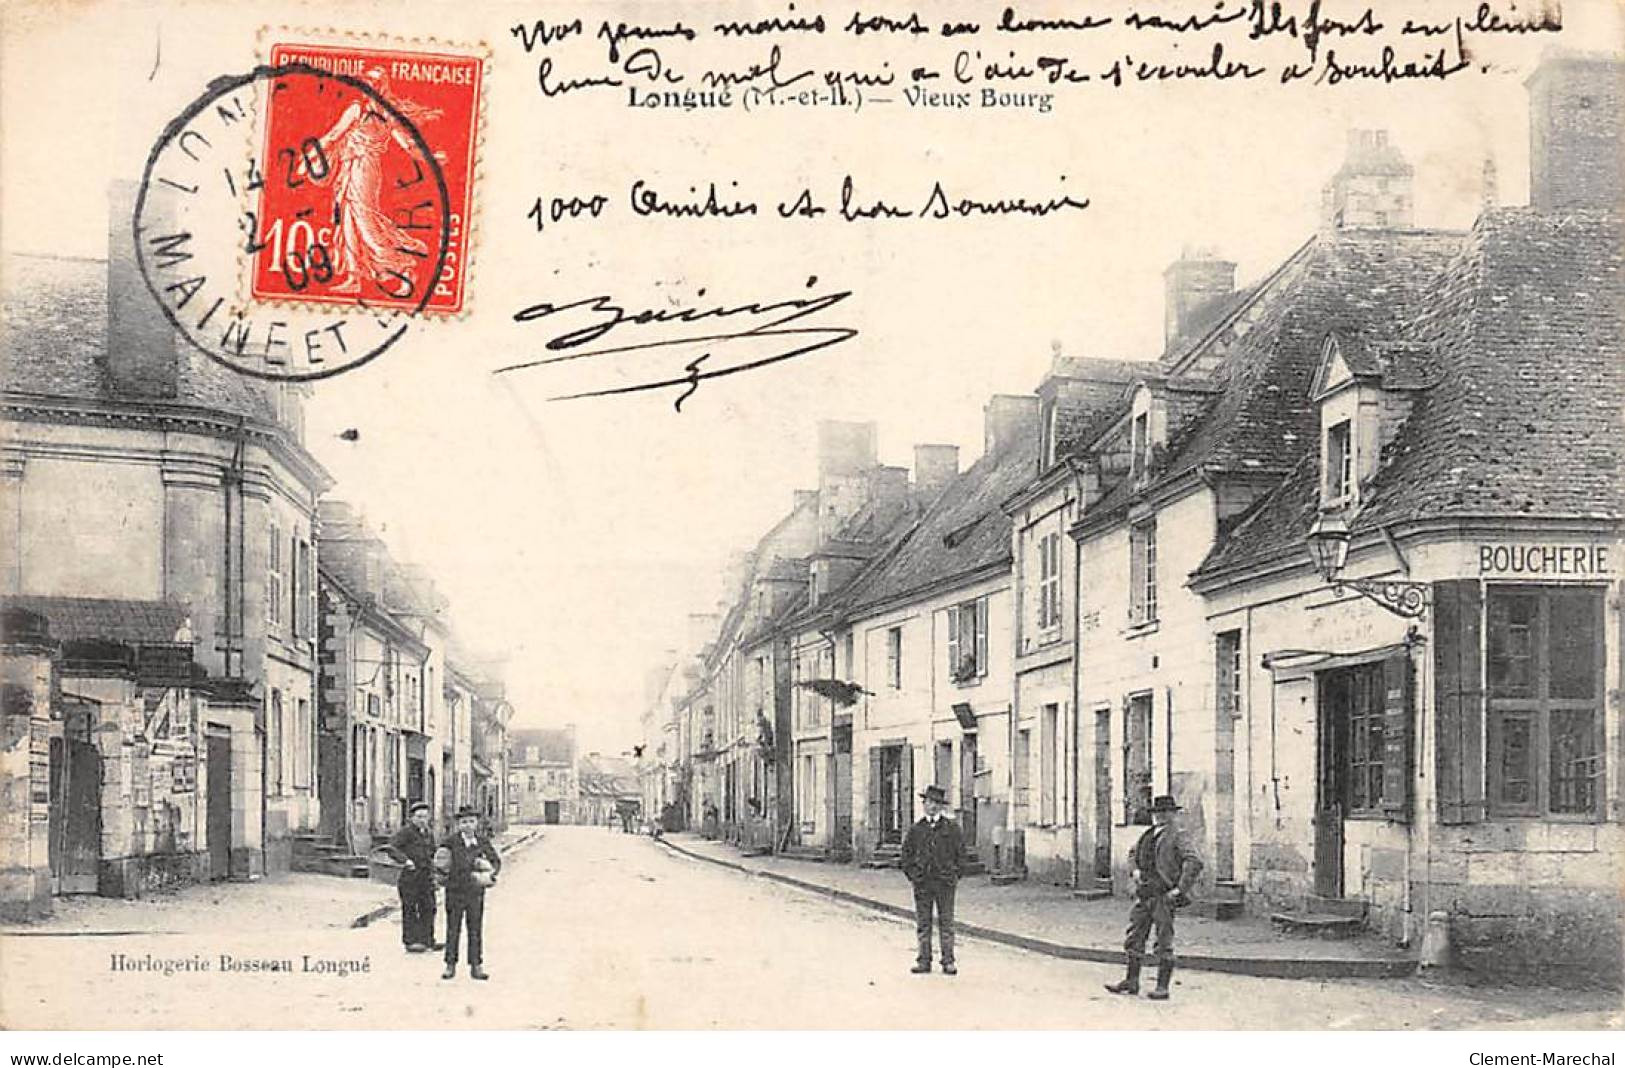 Nos jeunes mariés sont en bonne santé Ils font en pleine
lune de miel qui a l'air de s'écouler a souhait.
Longué (M.-et-L.) — Vieux Bourg
REPUBLIQUE FRANÇAISE
10c
POSTES
LONGUÉ
14 20
2 -1
09
MAINE ET LOIRE
1000 Amitiés et bon Souvenir
BOUCHERIE
Horlogerie Bosseau Longué
www.delcampe.net
Clement-Marechal